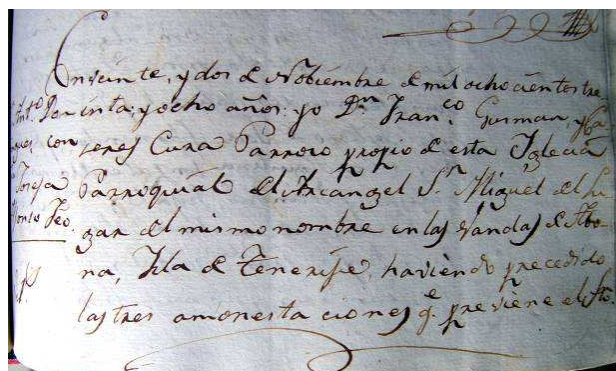 En veinte, y dos de Noviembre de mil ocho cientos tre
inta, y ocho años: yo Dn. Franco. Guzman, y
Cura Parroco propio de esta Yglecia
Parroquial del Arcangel Sn. Miguel del Lu
gar del mismo nombre en las Vandas de Abo
na, Ysla de Tenerife, haviendo precedido
las tres amonestaciones qe. previene el